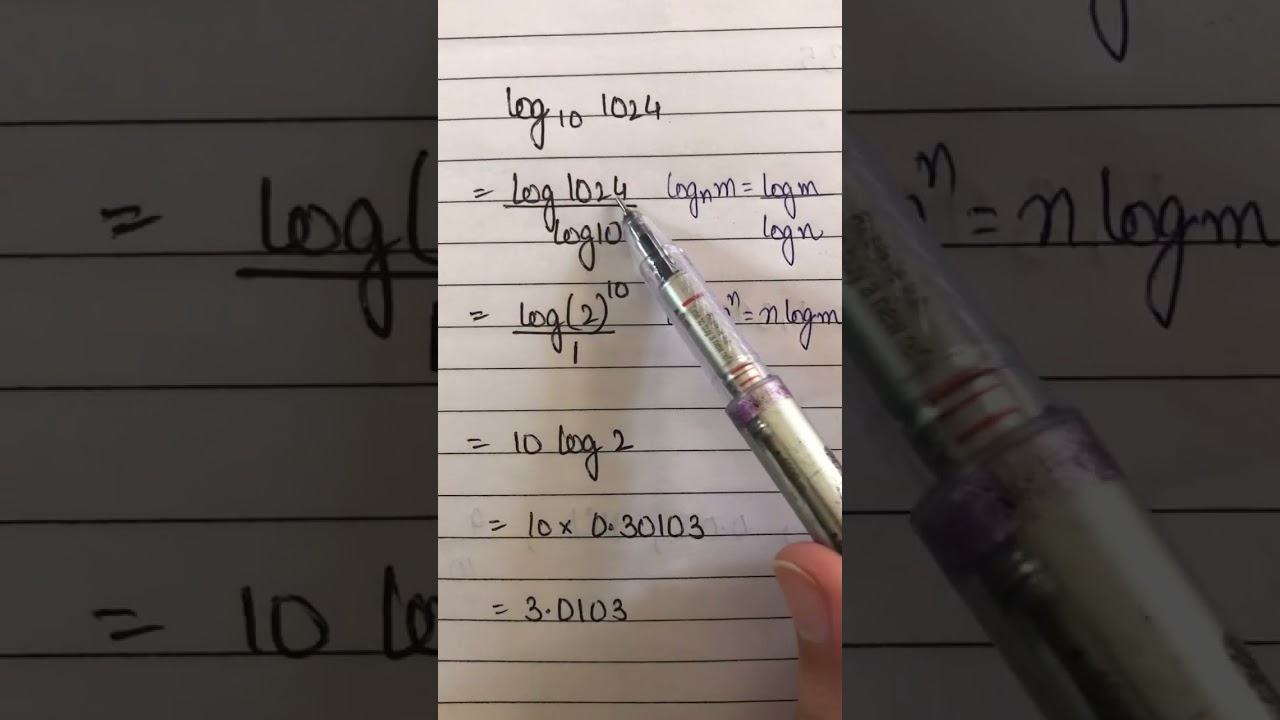 log₁₀ 1024
= log 1024 / log 10    logₙ m = log m / log n
= log(2)¹⁰ / 1    ⁿ = n log m
= 10 log 2
= 10 × 0.30103
= 3.0103